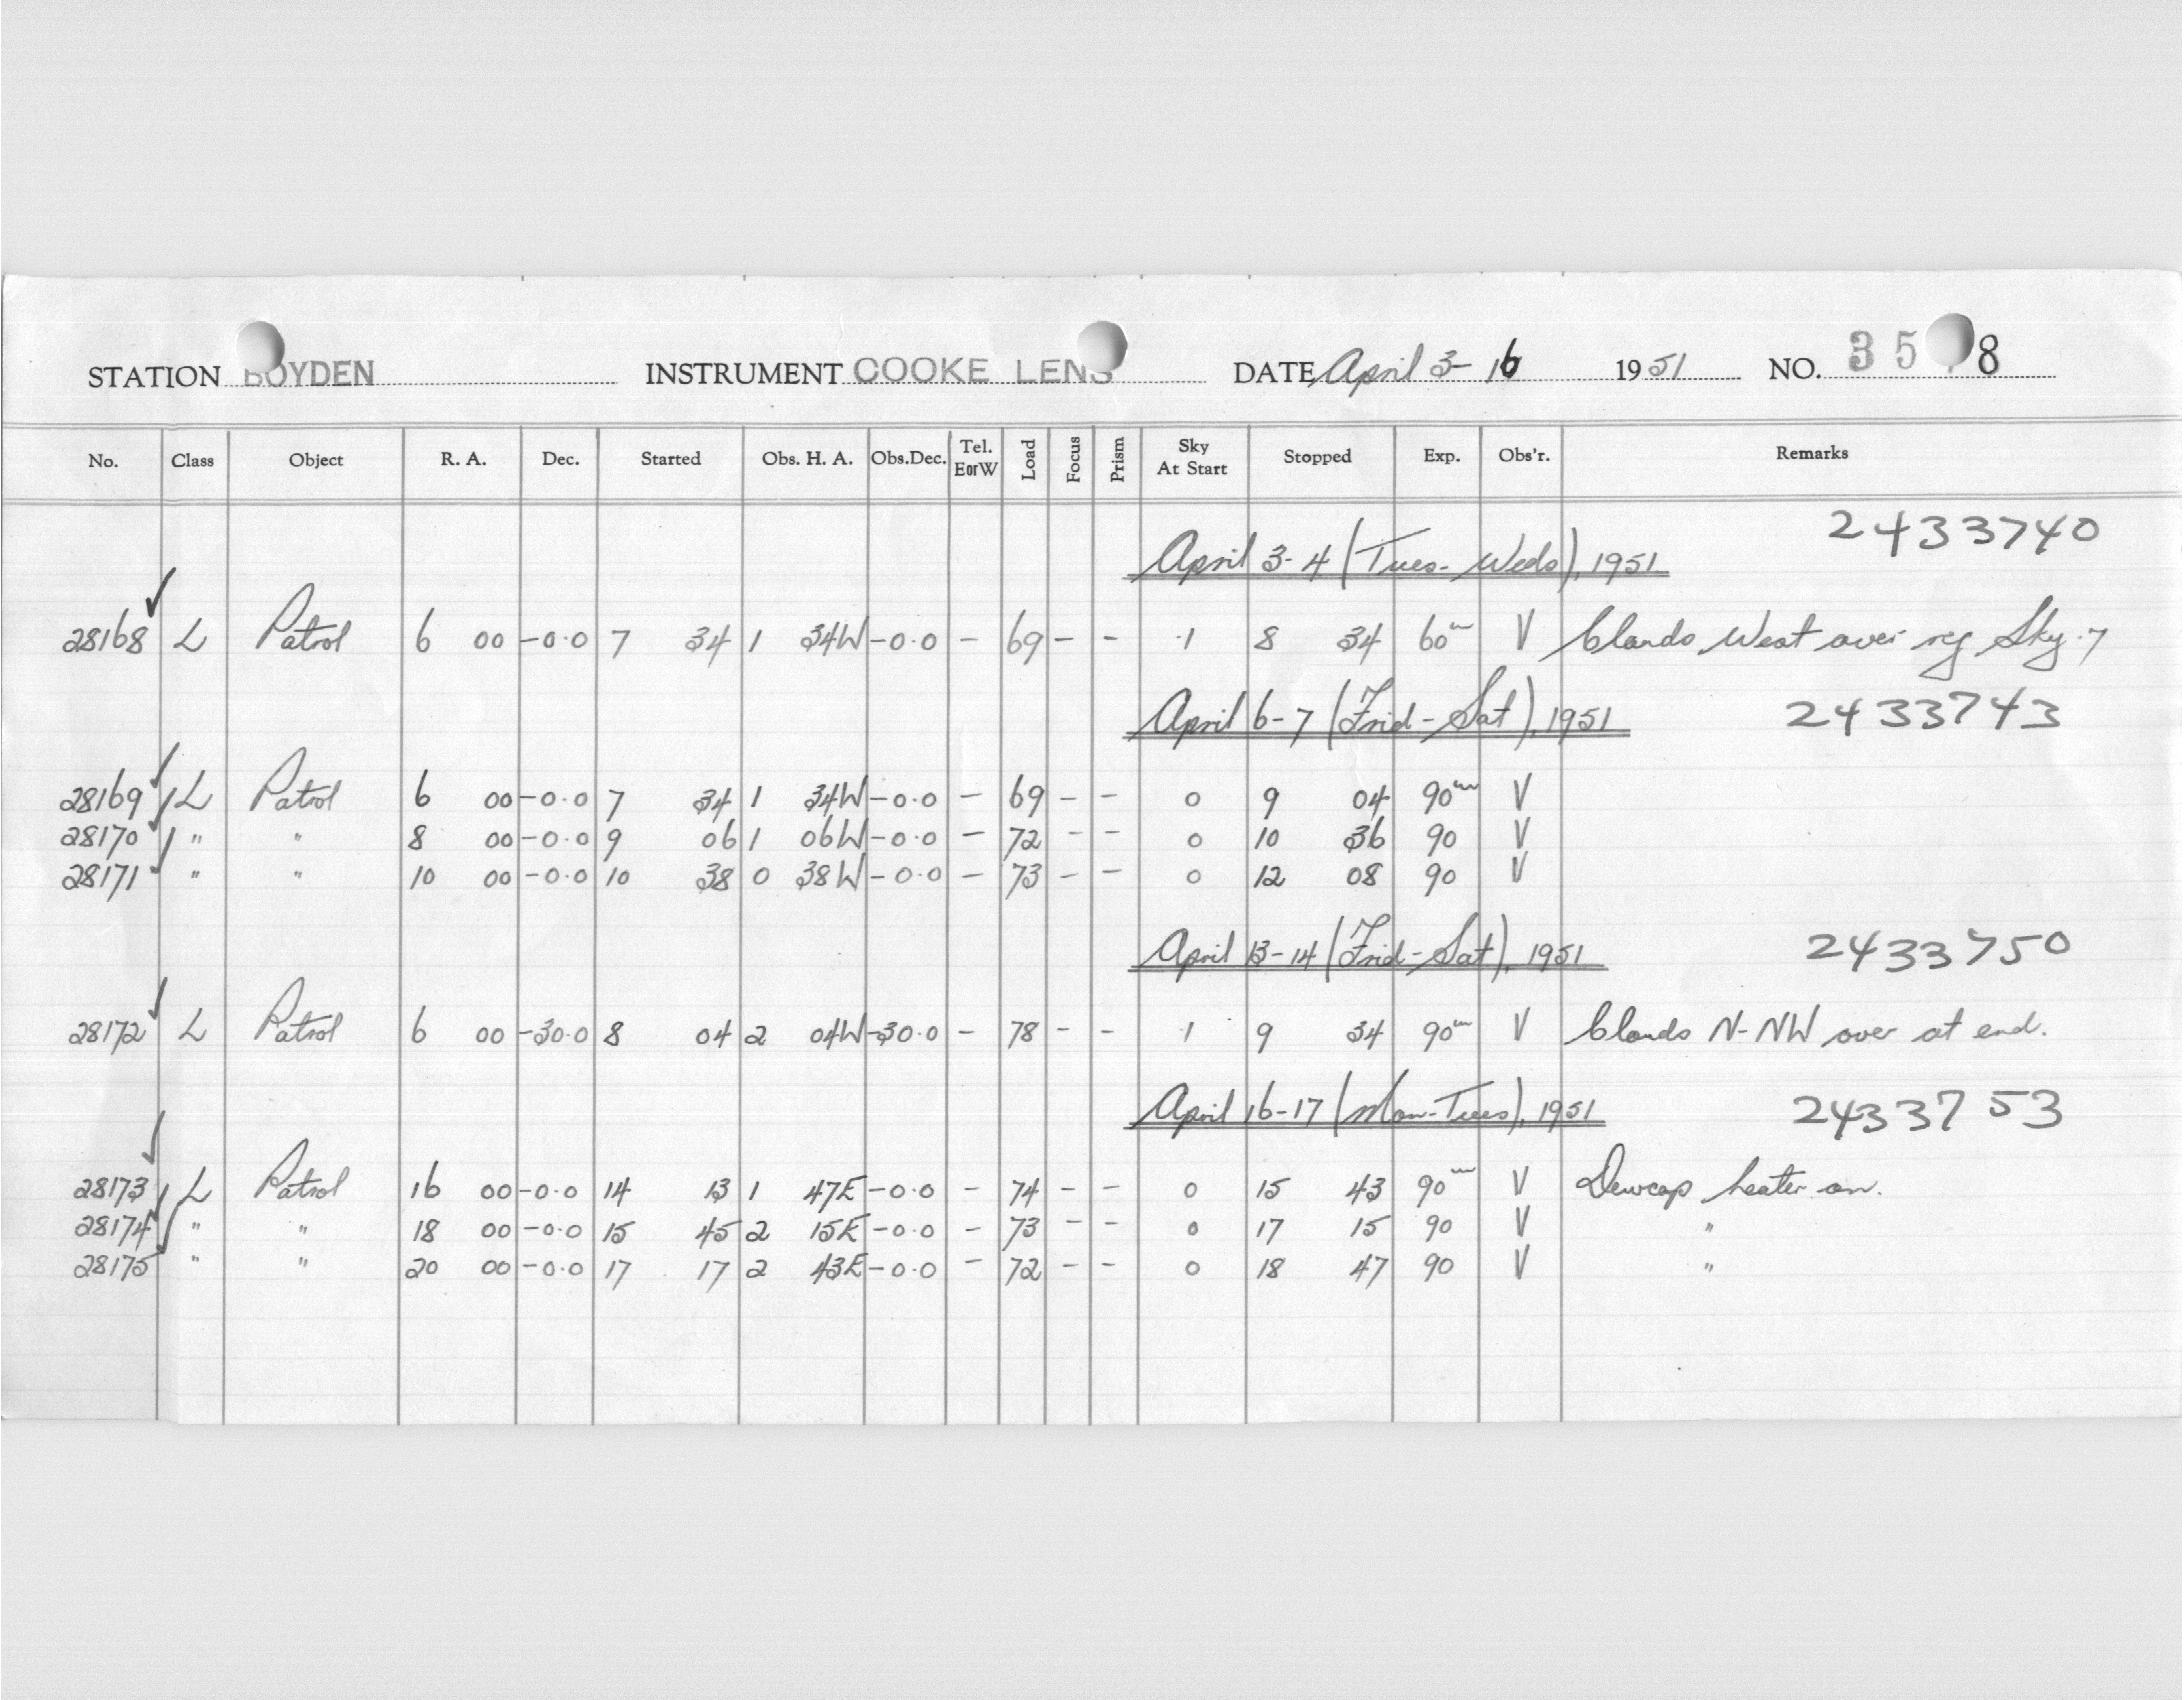 STATION BOYDEN INSTRUMENT COOKE LENS DATE April 3-16 1951 NO. 35 8
No. Class Object R. A. Dec. Started Obs. H. A. Obs.Dec. Tel. E or W Load Focus Prism Sky At Start Stopped Exp. Obs'r. Remarks
April 3-4 (Tues-Weds), 1951 2433740
28168 L Patrol 6 00 -0.0 7 34 1 34W -0.0 - 69 - - .1 8 34 60m V Clouds West over reg Sky .7
April 6-7 (Frid-Sat), 1951 2433743
28169 L Patrol 6 00 -0.0 7 34 1 34W -0.0 - 69 - - 0 9 04 90m V
28170 " " 8 00 -0.0 9 06 1 06W -0.0 - 72 - - 0 10 36 90 V
28171 " " 10 00 -0.0 10 38 0 38W -0.0 - 73 - - 0 12 08 90 V
April 13-14 (Frid-Sat), 1951 2433750
28172 L Patrol 6 00 -30.0 8 04 2 04W -30.0 - 78 - - .1 9 34 90m V Clouds N-NW over at end.
April 16-17 (Mon-Tues), 1951 2433753
28173 L Patrol 16 00 -0.0 14 13 1 47E -0.0 - 74 - - 0 15 43 90m V Dewcap heater on.
28174 " " 18 00 -0.0 15 45 2 15E -0.0 - 73 - - 0 17 15 90 V "
28175 " " 20 00 -0.0 17 17 2 43E -0.0 - 72 - - 0 18 47 90 V "